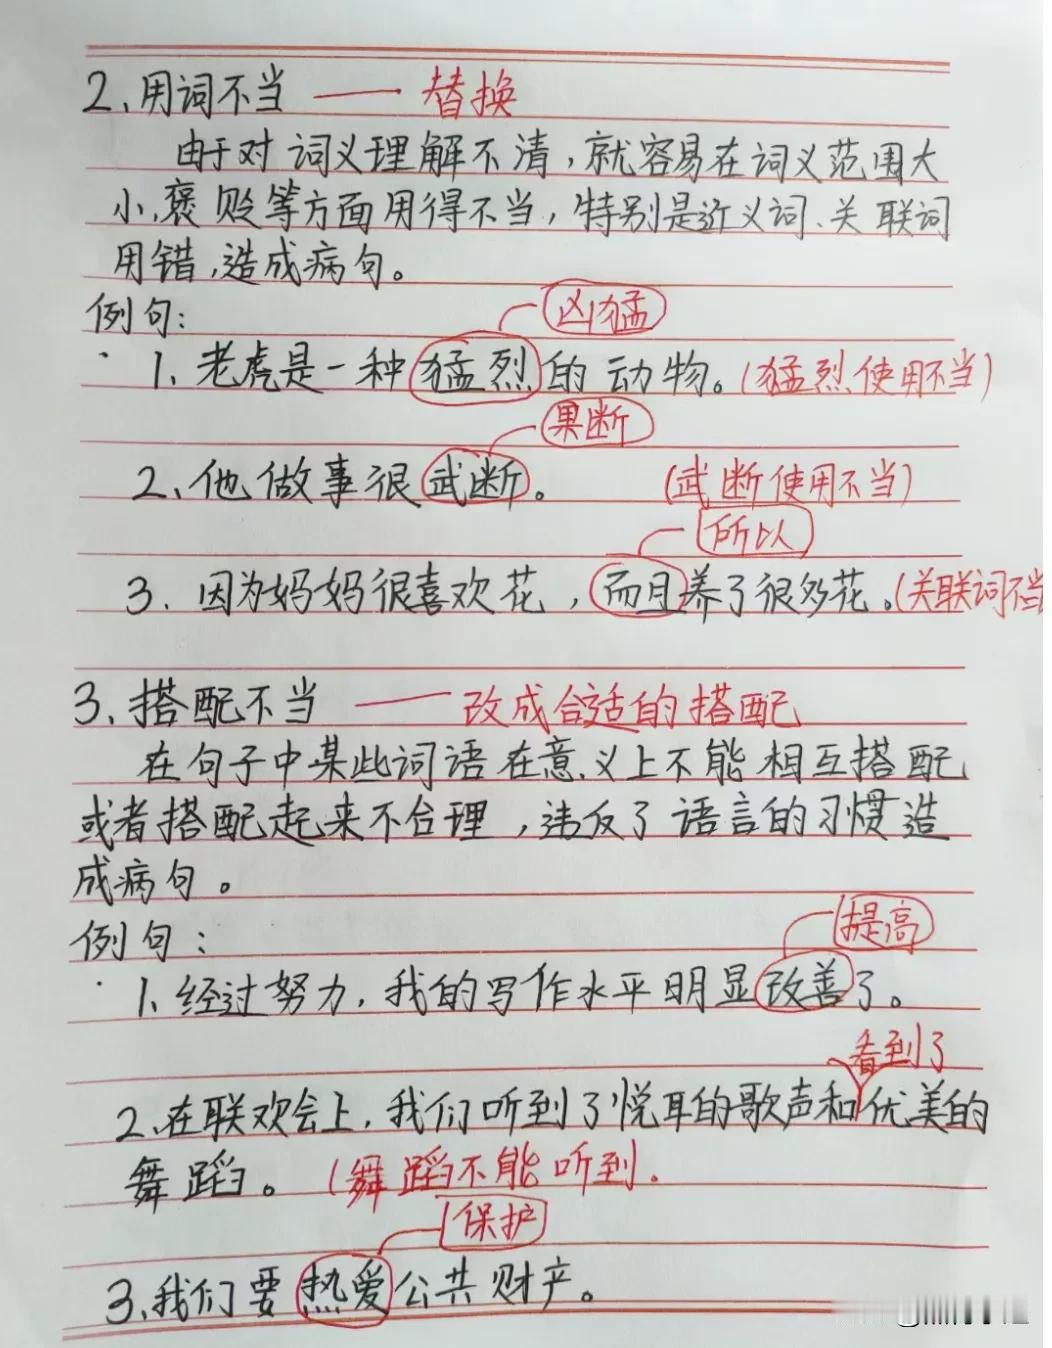 2、用词不当 —— 替换
由于对词义理解不清,就容易在词义范围大
小、褒贬等方面用得不当,特别是近义词、关联词
用错,造成病句。
例句:
凶猛
1、老虎是一种猛烈的动物。(猛烈使用不当)
果断
2、他做事很武断。(武断使用不当)
所以
3、因为妈妈很喜欢花,而且养了很多花。(关联词不当
3、搭配不当 —— 改成合适的搭配
在句子中某些词语在意义上不能相互搭配
或者搭配起来不合理,违反了语言的习惯造
成病句。
例句:
提高
1、经过努力,我的写作水平明显改善了。
看到了
2、在联欢会上,我们听到了悦耳的歌声和优美的
舞蹈。(舞蹈不能听到.
保护
3、我们要热爱公共财产。